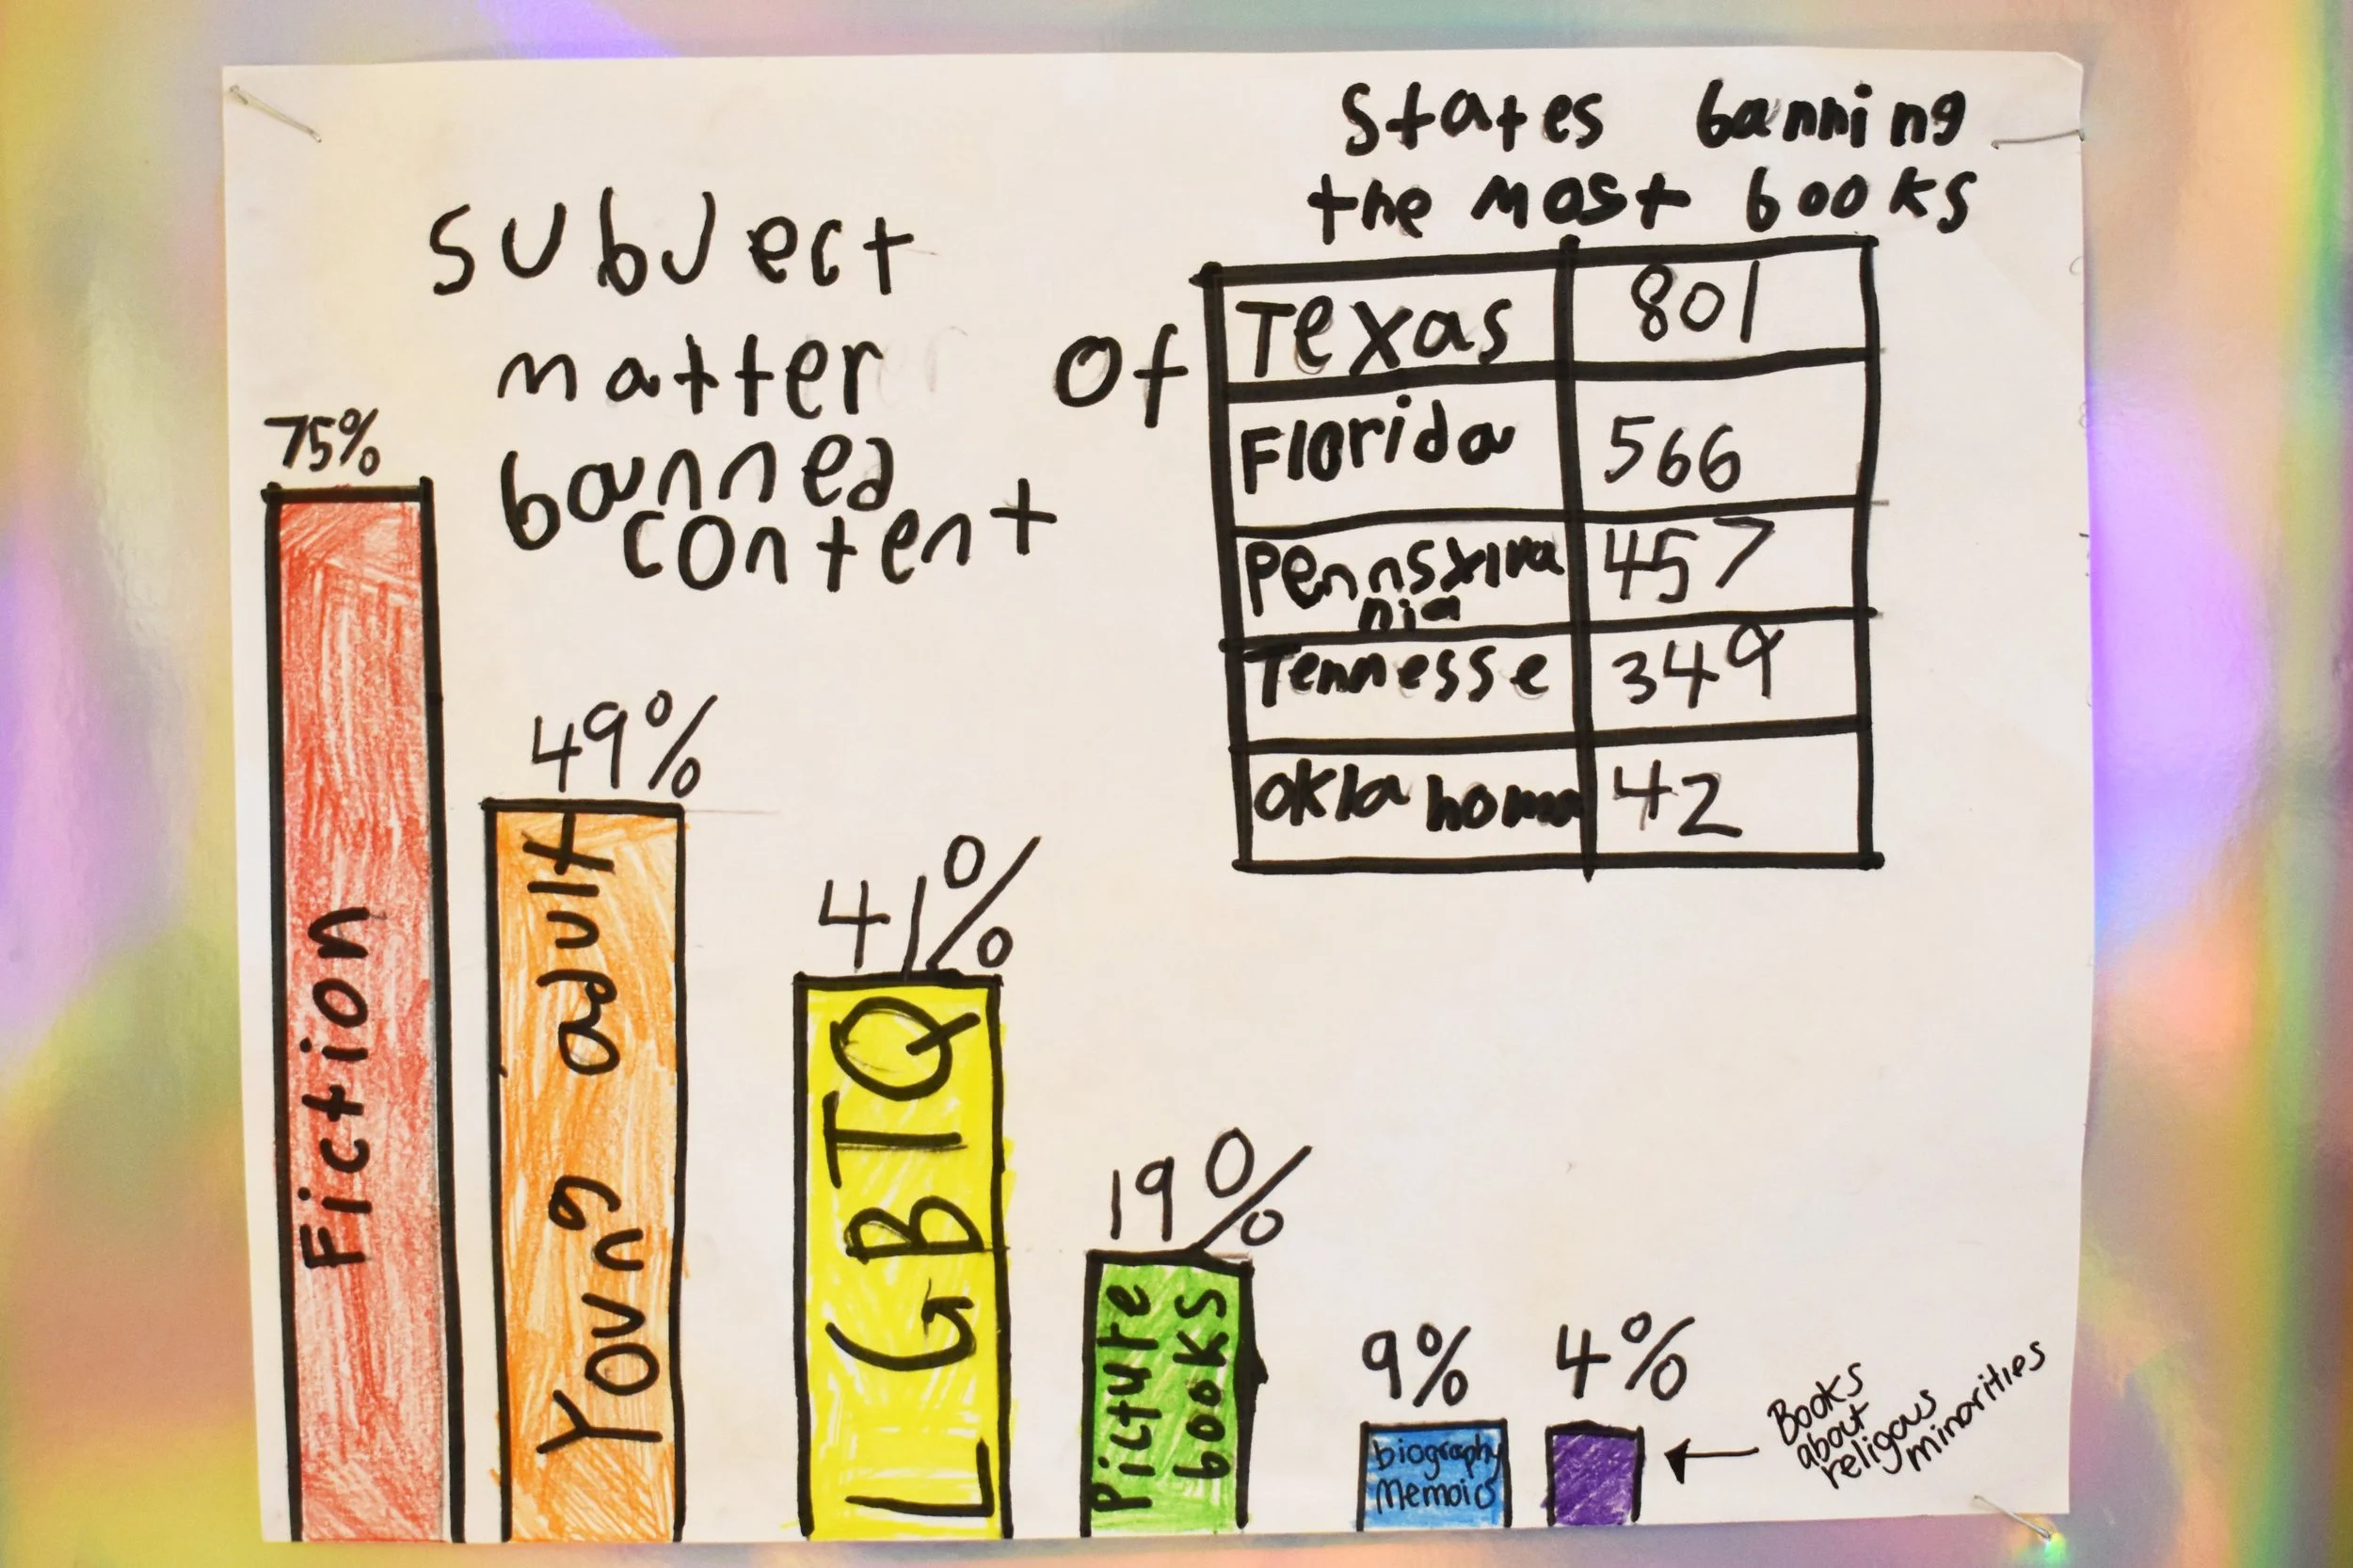 subject
matter of
banned
content
States banning
the most books
Texas 801
Florida 566
Pennsylva
nia 457
Tennesse 349
oklahoma 42
75%
Fiction
49%
Young adult
41%
LGBTQ
19%
Picture
books
9%
biography
Memoirs
4%
Books
about
religous
minorities